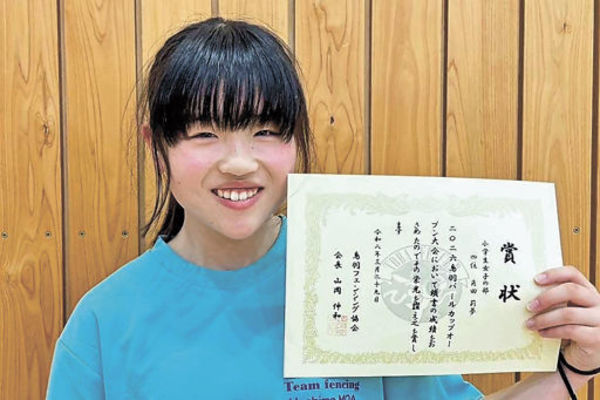 賞状
小学生女子の部
四位 角田 莉夢
二〇二六鳥羽パールカップオー
プン大会において頭書の成績をお
さめたのでその栄光を讃え之を賞し
ます
令和八年三月二十九日
鳥羽フェンシング協会
会長 山岡 伸和
Team fencing